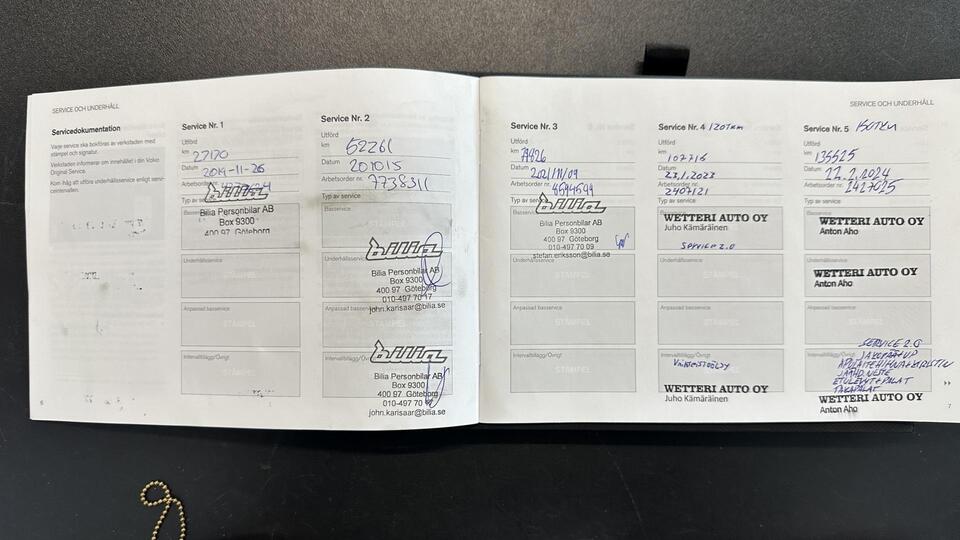 SERVICE OCH UNDERHÅLL
Servicedokumentation
Varje service ska bokföras av verkstaden med
stämpel och signatur.
Verkstaden informerar om innehållet i din Volvo
Original Service.
Kom ihåg att utföra underhållsservice enligt serv-
iceintervallen.
6
Service Nr. 1
Utförd
km 27170
Datum 2019-11-26
Arbetsorder
bilia
Bilia Personbilar AB
Box 9300
400 97 Göteborg
Underhållsservice
Anpassad basservice
Intervalltillägg/Övrigt
Service Nr. 2
Utförd
km 52261
Datum 201015
Arbetsorder nr. 7738311
Typ av service
Basservice
STÄMPEL
bilia
Underhållsservice
Bilia Personbilar AB
Box 9300
400 97 Göteborg
010-497 70 17
john.karisaar@bilia.se
Anpassad basservice
STÄMPEL
bilia
Intervalltillägg/Övrigt
Bilia Personbilar AB
Box 9300
400 97 Göteborg
010-497 70
john.karisaar@bilia.se
SERVICE OCH UNDERHÅLL
Service Nr. 3
Utförd
km
Datum 2021/11/09
Arbetsorder nr. 8594599
Typ av service
bilia
Bilia Personbilar AB
Box 9300
400 97 Göteborg
010-497 70 09
stefan.eriksson@bilia.se
Underhållsservice
STÄMPEL
Anpassad basservice
STÄMPEL
Intervalltillägg/Övrigt
STÄMPEL
Service Nr. 4 120TKM
Utförd
km 107716
Datum 23/1.2023
Arbetsorder nr. 2407121
Typ av service
Basservice
WETTERI AUTO OY
Juho Kämäräinen
SERVICE 2.0
Underhållsservice
STÄMPEL
Anpassad basservice
STÄMPEL
Intervalltillägg/Övrigt
WETTERI AUTO OY
Juho Kämäräinen
Service Nr. 5 150TKM
Utförd
km 135525
Datum 22.2.2024
Arbetsorder nr. 2427025
Typ av service
Basservice
WETTERI AUTO OY
Anton Aho
Underhållsservice
WETTERI AUTO OY
Anton Aho
Anpassad basservice
STÄMPEL
SERVICE 2.0
Intervalltillägg/Övrigt
JÄÄHD.NESTE
ETULEVYT+PALAT
TAKAPALAT
WETTERI AUTO OY
Anton Aho
7